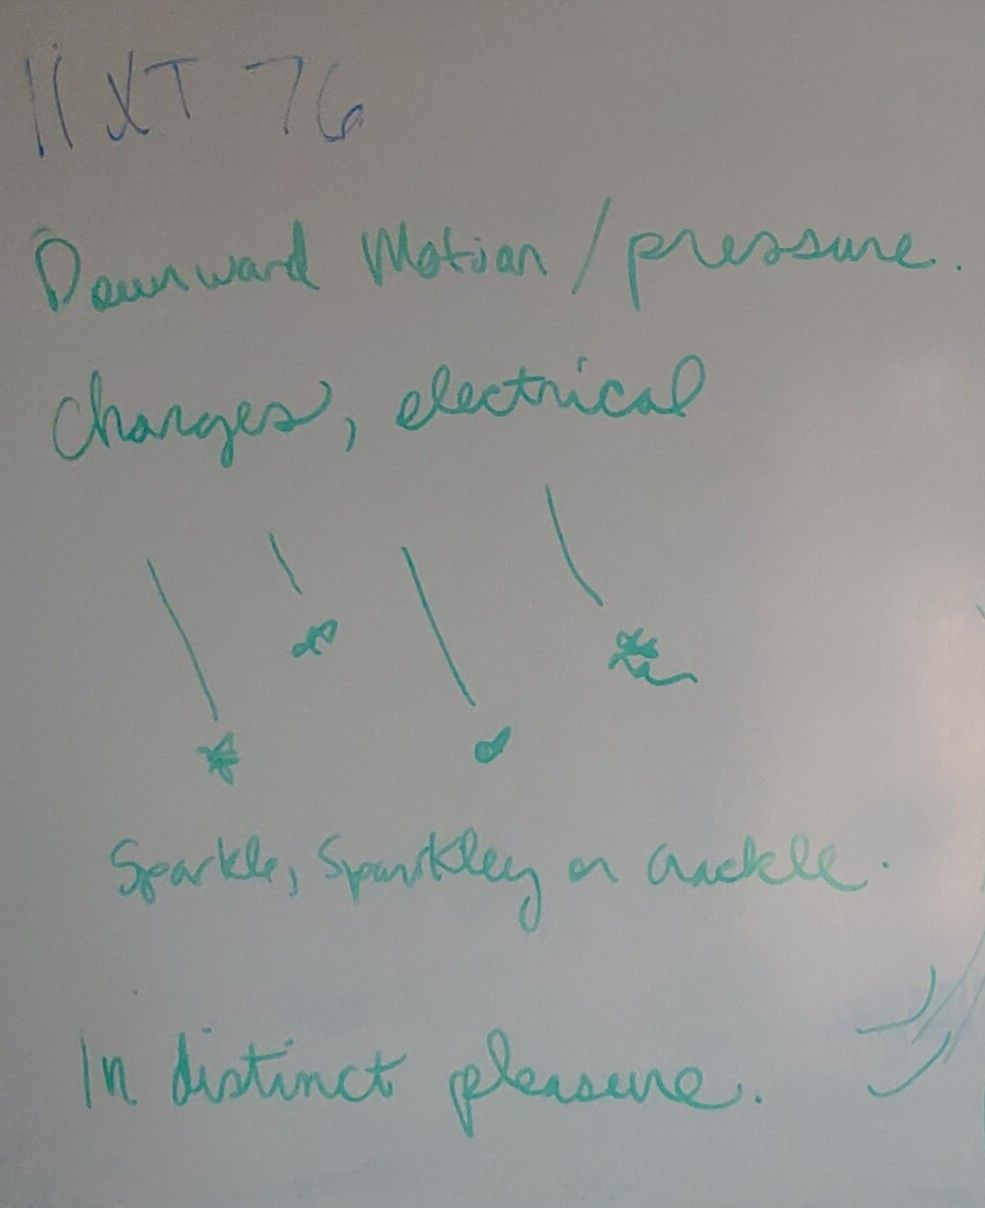 11 XT 76
Downward Motion / pressure.
Charges, electrical
Sparkle, Sparkley or crackle.
In distinct pleasure.